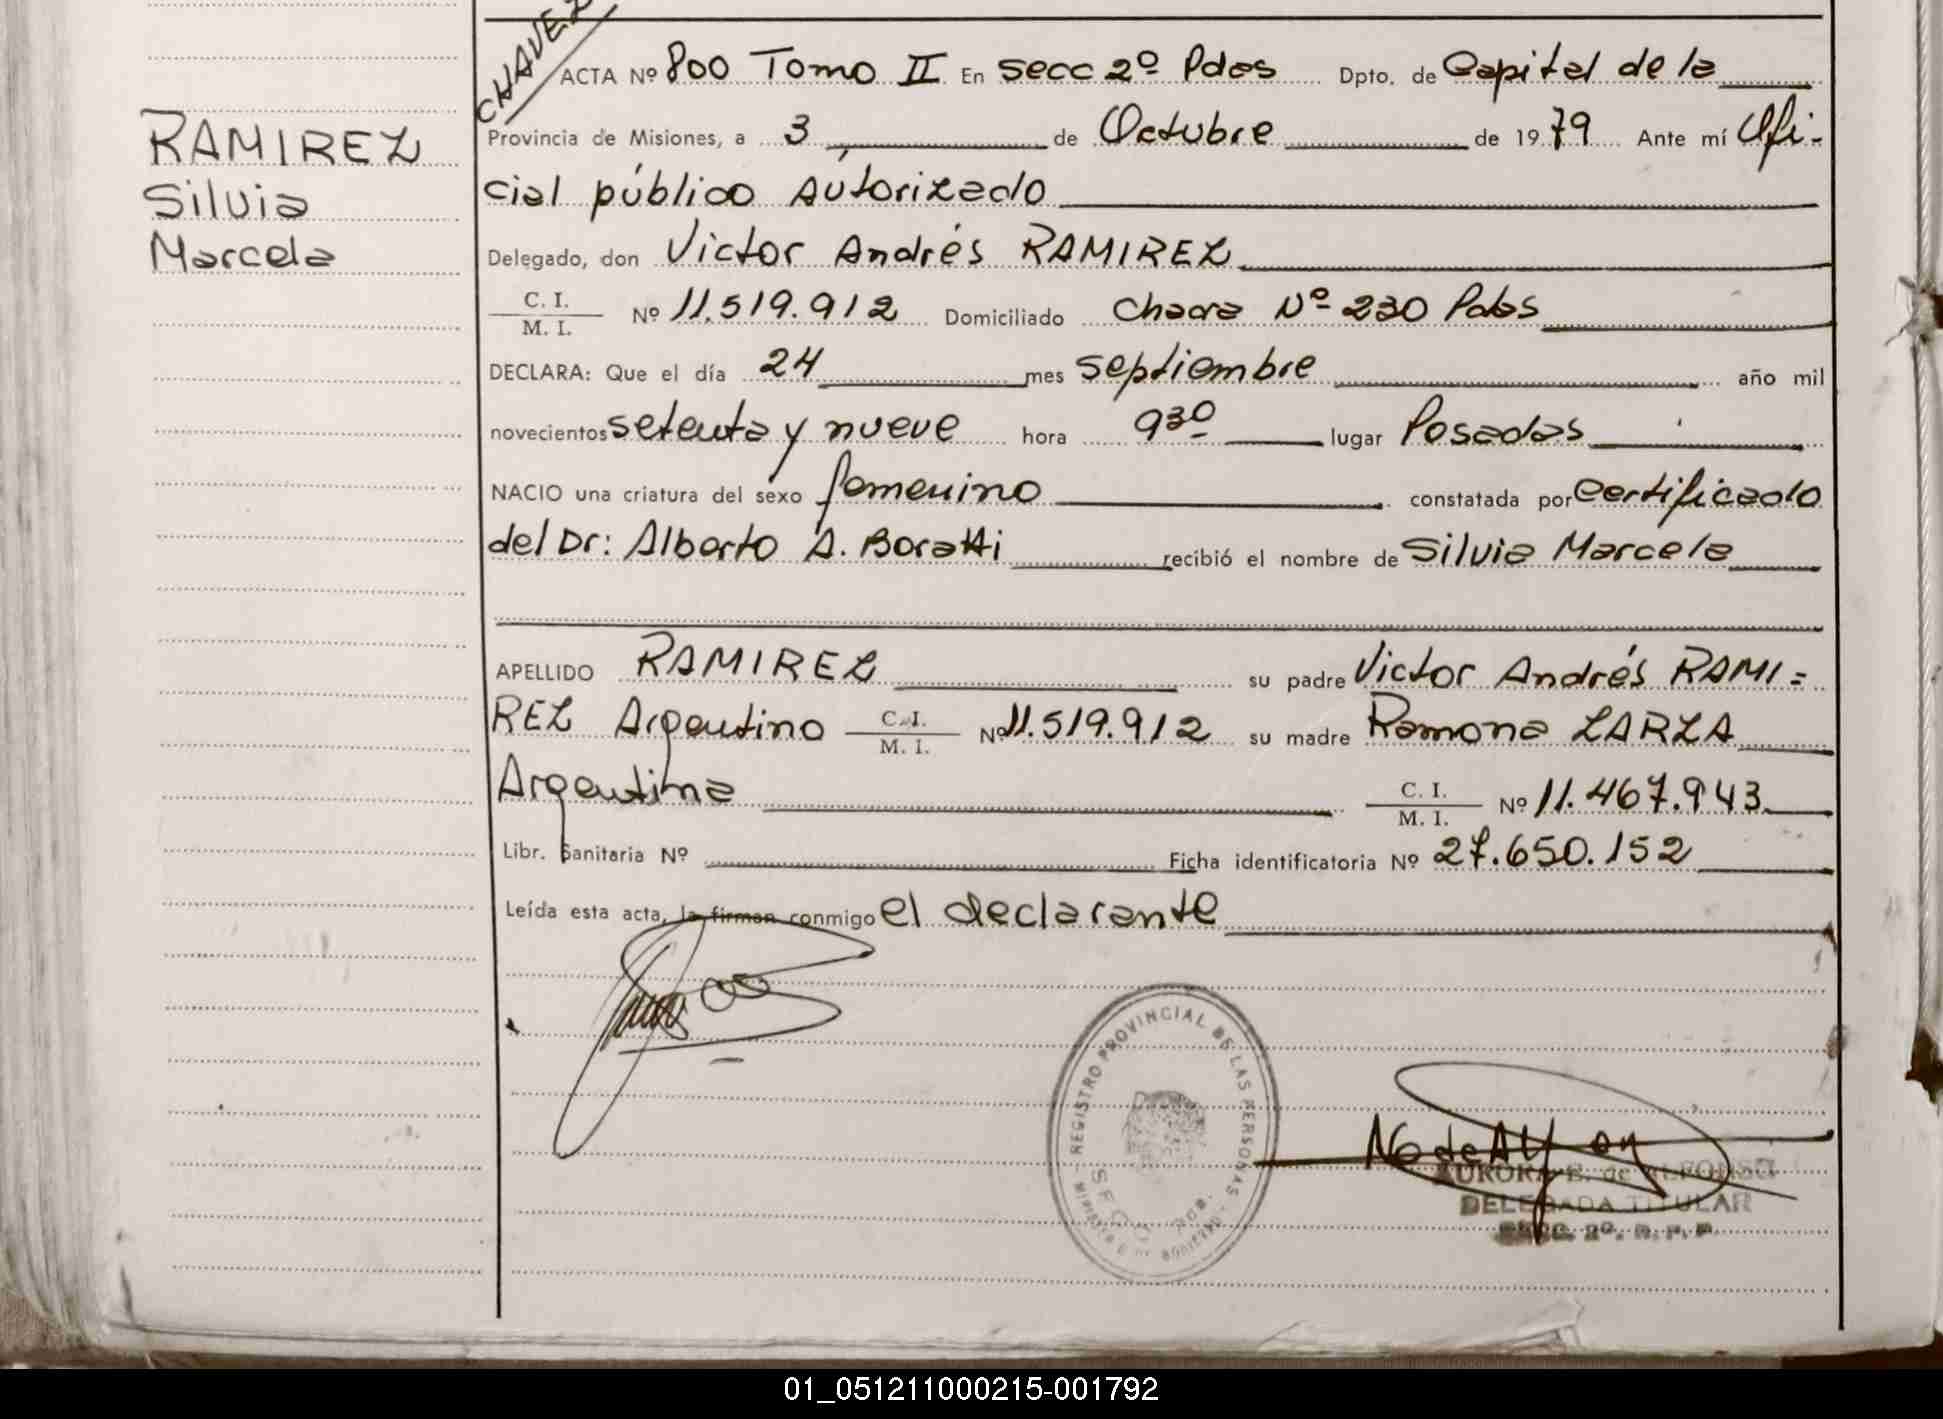 CHAVEZ
ACTA Nº 800 Tomo II En secc 2º Pdas Dpto. de Capital de la
RAMIREZ
Silvia
Marcela
Provincia de Misiones, a 3 de Octubre de 1979 Ante mí Ofi-
cial público Autorizado
Delegado, don Victor Andrés RAMIREZ
C. I.
M. I. Nº 11.519.912 Domiciliado Chacra Nº 230 Pdas
DECLARA: Que el día 24 mes septiembre año mil
novecientos setenta y nueve hora 9³⁰ lugar Posadas
NACIO una criatura del sexo femenino constatada por Certificado
del Dr: Alberto A. Boratti recibió el nombre de Silvia Marcela
APELLIDO RAMIREZ su padre Victor Andrés RAMI=
REZ Argentino C. I. M. I. Nº 11.519.912 su madre Ramona ZARZA
Argentina C. I. M. I. Nº 11.467.943
Libr. Sanitaria Nº Ficha identificatoria Nº 27.650.152
Leída esta acta, la firman conmigo el declarante
REGISTRO PROVINCIAL DE LAS PERSONAS
AURORA E. de ALFONSO
DELEGADA TITULAR
SECC. 2º. R. P. P.
01_051211000215-001792